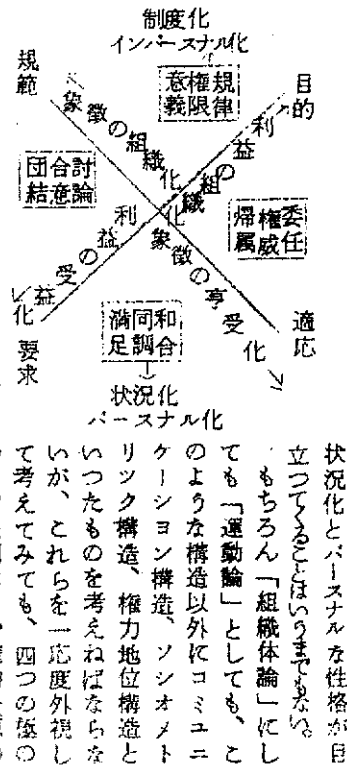 制度化
インパースナル化
規律
権限
意義
目的
規範
象徴の組織化
利益の組織化
討論
合意
団結
委任
権威
帰属
利益の受益化
象徴の享受化
要求
適応
和合
同調
満足
状況化
パースナル化
状況化とパースナルな性格が目
立つてくることはいうまでもない。
もちろん「組織体論」にし
ても「運動論」としても、こ
のような構造以外にコミユニ
ケーション構造、ソシオメト
リック構造、権力地位構造と
いつたものを考えねばならな
いが、これらを一応度外視し
て考えてみても、四つの極の